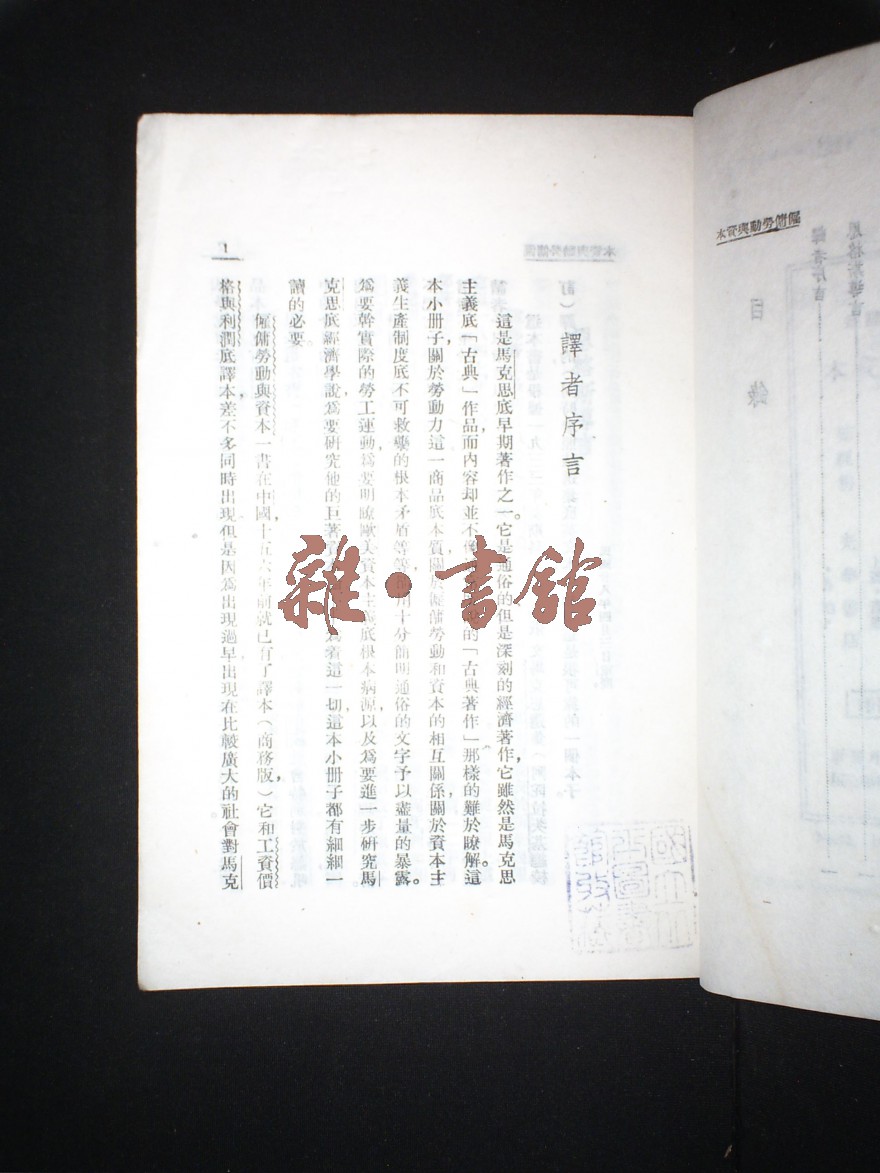 譯者序言
這是馬克思底早期著作之一。它是通俗的但是深刻的經濟著作,它雖然是馬克思
主義底「古典」作品,而內容却並不像 的「古典著作」那樣的難於瞭解。這
本小册子,關於勞動力這一商品底本質,關於僱傭勞動和資本的相互關係,關於資本主
義生產制度底不可救藥的根本矛盾等 用十分簡明通俗的文字予以盡量的暴露。
爲要幹實際的勞工運動,爲要明瞭歐美資本主義底根本病源,以及爲要進一步研究馬
克思底經濟學說,爲要研究他的巨著資 爲着這一切,這本小册子都有細細一
讀的必要。
僱傭勞動與資本一書在中國,十五六年前就已有了譯本(商務版,)它和工資價
格與利潤底譯本,差不多同時出現,但是因爲出現過早,出現在比較廣大的社會對馬克
1
雜·書館
僱傭勞動與資本
目錄
譯者序言